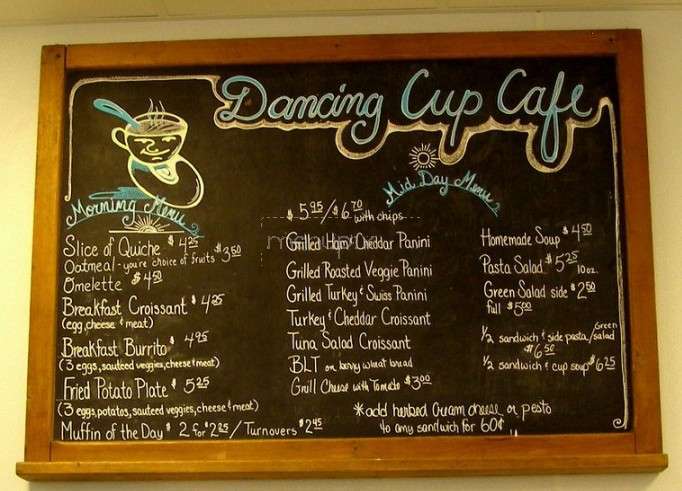 Dancing Cup Cafe
Morning Menu
Slice of Quiche $4.25
Oatmeal - you're choice of fruits $3.50
Omelette $4.50
Breakfast Croissant $4.25
(egg, cheese & meat)
Breakfast Burrito $4.95
(3 eggs, sauteed veggies, cheese & meat)
Fried Potato Plate $5.25
(3 eggs, potatos, sauteed veggies, cheese & meat)
Muffin of the Day $2 for $2.25 / Turnovers $2.45
Mid Day Menu
$5.95/$6.70 with chips
Grilled Ham & Cheddar Panini
Grilled Roasted Veggie Panini
Grilled Turkey & Swiss Panini
Turkey & Cheddar Croissant
Tuna Salad Croissant
BLT on berry wheat bread
Grill Cheese with Tomato $3.00
Homemade Soup $4.50
Pasta Salad $5.25 10 oz.
Green Salad side $2.50
full $5.00
1/2 sandwich & side pasta/green salad
$6.50
1/2 sandwich & cup soup $6.25
*add herbed cream cheese or pesto
to any sandwich for 60¢